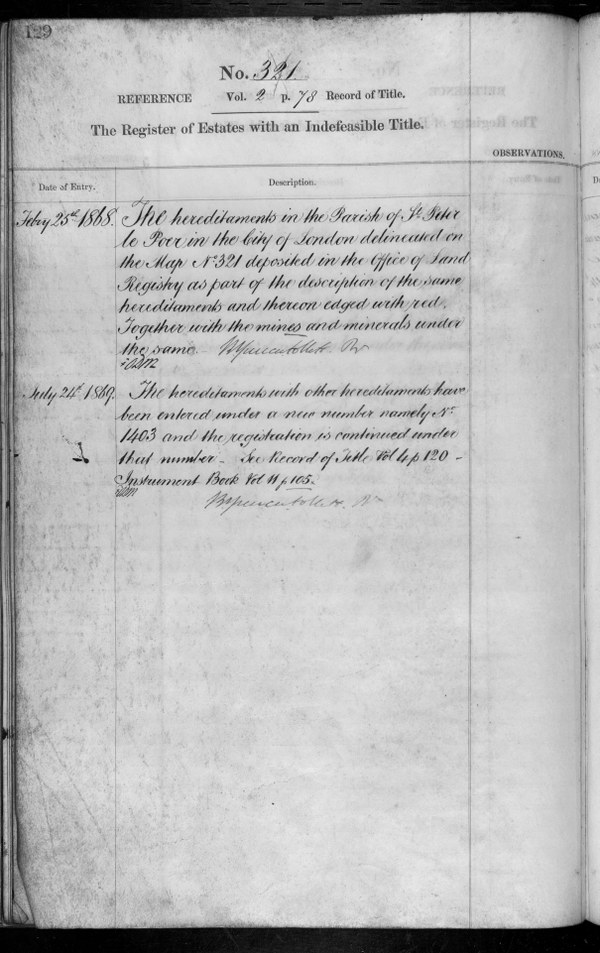 129
No. 321
REFERENCE Vol. 2 p. 78 Record of Title.
The Register of Estates with an Indefeasible Title.
OBSERVATIONS.
Date of Entry.
Description.
Febry 25th 1868.
The hereditaments in the Parish of St. Peter
le Poer in the City of London delineated on
the Map No. 321 deposited in the Office of Land
Registry as part of the description of the same
hereditaments and thereon edged with red.
Together with the mines and minerals under
the same
July 24th 1869.
The hereditaments with other hereditaments have
been entered under a new number namely No.
1403 and the registration is continued under
that number - See Record of Title Vol 4 p 120 -
Instrument Book Vol 11 p 105.